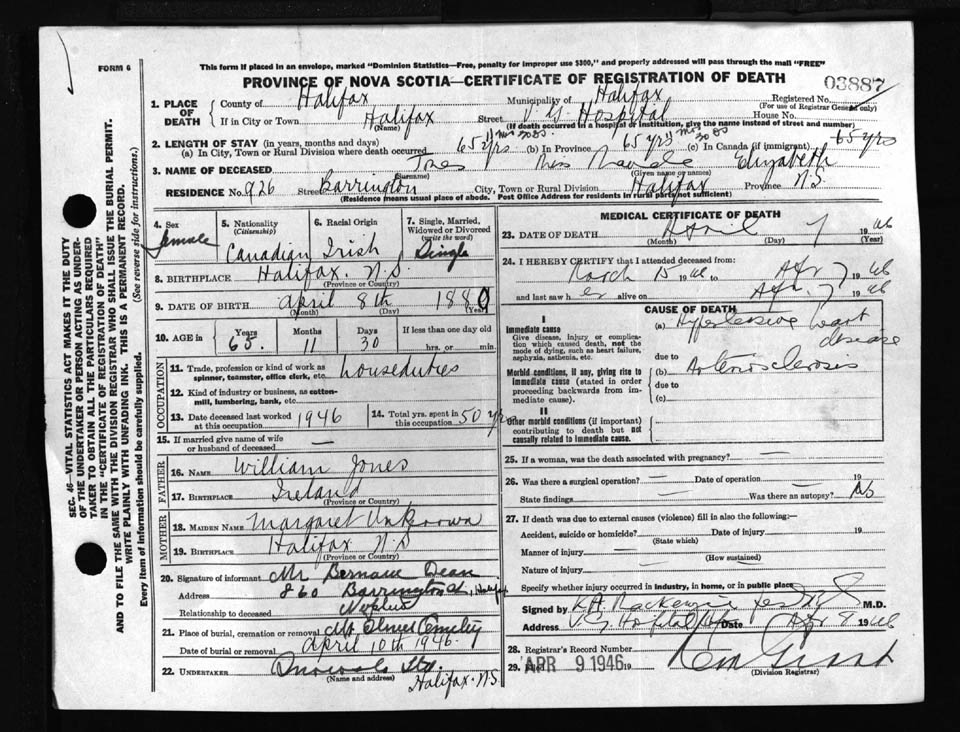 FORM 6
This form if placed in an envelope, marked "Dominion Statistics—Free, penalty for improper use $300," and properly addressed will pass through the mail "FREE"
PROVINCE OF NOVA SCOTIA—CERTIFICATE OF REGISTRATION OF DEATH
03887
1. PLACE OF DEATH
County of Halifax Municipality of Halifax Registered No.
(For use of Registrar General only)
If in City or Town Halifax Street V. G. Hospital House No.
(Name) (If death occurred in a hospital or institution, give the name instead of street and number)
2. LENGTH OF STAY (in years, months and days)
(a) In City, Town or Rural Division where death occurred 65 yrs 11 mos 30 ds (b) In Province 65 yrs 11 mos 30 ds (c) In Canada (if immigrant) 65 yrs
3. NAME OF DECEASED Jones Miss Elizabeth
(Surname) (Given name or names)
RESIDENCE No. 926 Street Barrington City, Town or Rural Division Halifax Province N.S.
(Residence means usual place of abode. Post Office Address for residents in rural parts not sufficient)
4. Sex
Female
5. Nationality
(Citizenship)
Canadian
6. Racial Origin
Irish
7. Single, Married, Widowed or Divorced
(write the word)
Single
8. BIRTHPLACE Halifax. N.S.
(Province or Country)
9. DATE OF BIRTH April 8th 1880
(Month) (Day) (Year)
10. AGE in Years Months Days If less than one day old
65. 11 30 hrs. or min.
OCCUPATION
11. Trade, profession or kind of work as spinner, teamster, office clerk, etc. houseduties
12. Kind of industry or business, as cotton-mill, lumbering, bank, etc.
13. Date deceased last worked at this occupation 1946
14. Total yrs. spent in this occupation 50 yrs
15. If married give name of wife or husband of deceased —
FATHER
16. NAME William Jones
17. BIRTHPLACE Ireland
(Province or Country)
MOTHER
18. MAIDEN NAME Margaret Unknown
19. BIRTHPLACE Halifax N.S
(Province or Country)
20. Signature of informant Mr Bernard Dean
Address 860 Barrington St, Halifax
Relationship to deceased Nephew
21. Place of burial, cremation or removal Mt Olivet Cemetery
Date of burial or removal April 10th 1946.
22. UNDERTAKER Ltd.
(Name and address) Halifax. N.S
MEDICAL CERTIFICATE OF DEATH
23. DATE OF DEATH April 7 1946
(Month) (Day) (Year)
24. I HEREBY CERTIFY that I attended deceased from:
March 15 1946 to Apr 7 1946
and last saw her alive on Apr. 7 1946
CAUSE OF DEATH
I
Immediate cause
Give disease, injury or complication which caused death, not the mode of dying, such as heart failure, asphyxia, asthenia, etc.
(a) Hypertensive heart disease
due to
Morbid conditions, if any, giving rise to immediate cause (stated in order proceeding backwards from immediate cause).
(b) Arteriosclerosis
due to
(c)
II
Other morbid conditions (if important) contributing to death but not causally related to immediate cause.
25. If a woman, was the death associated with pregnancy? —
26. Was there a surgical operation? — Date of operation — 19
State findings — Was there an autopsy? No
27. If death was due to external causes (violence) fill in also the following:—
Accident, suicide or homicide? Date of injury 19
(State which)
Manner of injury —
(How sustained)
Nature of injury —
Specify whether injury occurred in industry, in home, or in public place
Signed by K.A. Mackenzie M.D.
Address V.G. Hospital Date Apr 8 1946
28. Registrar's Record Number
29. Filed APR 9 1946 19
(Division Registrar)
SEC. 46–VITAL STATISTICS ACT MAKES IT THE DUTY
OF THE UNDERTAKER OR PERSON ACTING AS UNDER-
TAKER TO OBTAIN ALL THE PARTICULARS REQUIRED
IN THE "CERTIFICATE OF REGISTRATION OF DEATH"
AND TO FILE THE SAME WITH THE DIVISION REGISTRAR WHO SHALL ISSUE THE BURIAL PERMIT.
WRITE PLAINLY WITH UNFADING INK. THIS IS A PERMANENT RECORD.
Every item of information should be carefully supplied. (See reverse side for instructions.)